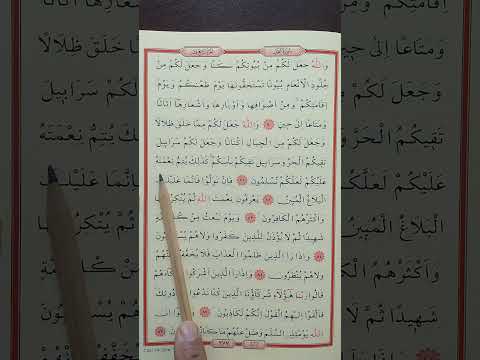 وَاللّٰهُ جَعَلَ لَكُمْ مِنْ بُيُوتِكُمْ سَكَنًا وَجَعَلَ لَكُمْ مِنْ
جُلُودِ الْاَنْعَامِ بُيُوتًا تَسْتَخِفُّونَهَا يَوْمَ ظَعْنِكُمْ وَيَوْمَ
اِقَامَتِكُمْ وَمِنْ اَصْوَافِهَا وَاَوْبَارِهَا وَاَشْعَارِهَا اَثَاثًا
وَمَتَاعًا اِلٰى حِينٍ ٨٠ وَاللّٰهُ جَعَلَ لَكُمْ مِمَّا خَلَقَ ظِلَالًا
وَجَعَلَ لَكُمْ مِنَ الْجِبَالِ اَكْنَانًا وَجَعَلَ لَكُمْ سَرَابِيلَ
تَقِيكُمُ الْحَرَّ وَسَرَابِيلَ تَقِيكُمْ بَأْسَكُمْ كَذٰلِكَ يُتِمُّ نِعْمَتَهُ
عَلَيْكُمْ لَعَلَّكُمْ تُسْلِمُونَ ٨١ فَاِنْ تَوَلَّوْا فَاِنَّمَا عَلَيْكَ
الْبَلَاغُ الْمُبِينُ ٨٢ يَعْرِفُونَ نِعْمَتَ اللّٰهِ ثُمَّ يُنْكِرُونَهَا
وَاَكْثَرُهُمُ الْكَافِرُونَ ٨٣ وَيَوْمَ نَبْعَثُ مِنْ كُلِّ اُمَّةٍ
شَهِيدًا ثُمَّ لَا يُؤْذَنُ لِلَّذِينَ كَفَرُوا وَلَاهُمْ يُسْتَعْتَبُونَ
٨٤ وَاِذَا رَاَ الَّذِينَ ظَلَمُوا الْعَذَابَ فَلَا يُخَفَّفُ عَنْهُمْ
وَلَاهُمْ يُنْظَرُونَ ٨٥ وَاِذَا رَاَ الَّذِينَ اَشْرَكُوا شُرَكَاءَهُمْ
قَالُوا رَبَّنَا هٰٓؤُلَاءِ شُرَكَاؤُنَا الَّذِينَ كُنَّا نَدْعُوا مِنْ دُونِكَ
فَاَلْقَوْا اِلَيْهِمُ الْقَوْلَ اِنَّكُمْ لَكَاذِبُونَ ٨٦ وَاَلْقَوْا اِلَى
اللّٰهِ يَوْمَئِذٍ السَّلَمَ وَضَلَّ عَنْهُمْ مَا كَانُوا يَفْتَرُونَ ٨٧